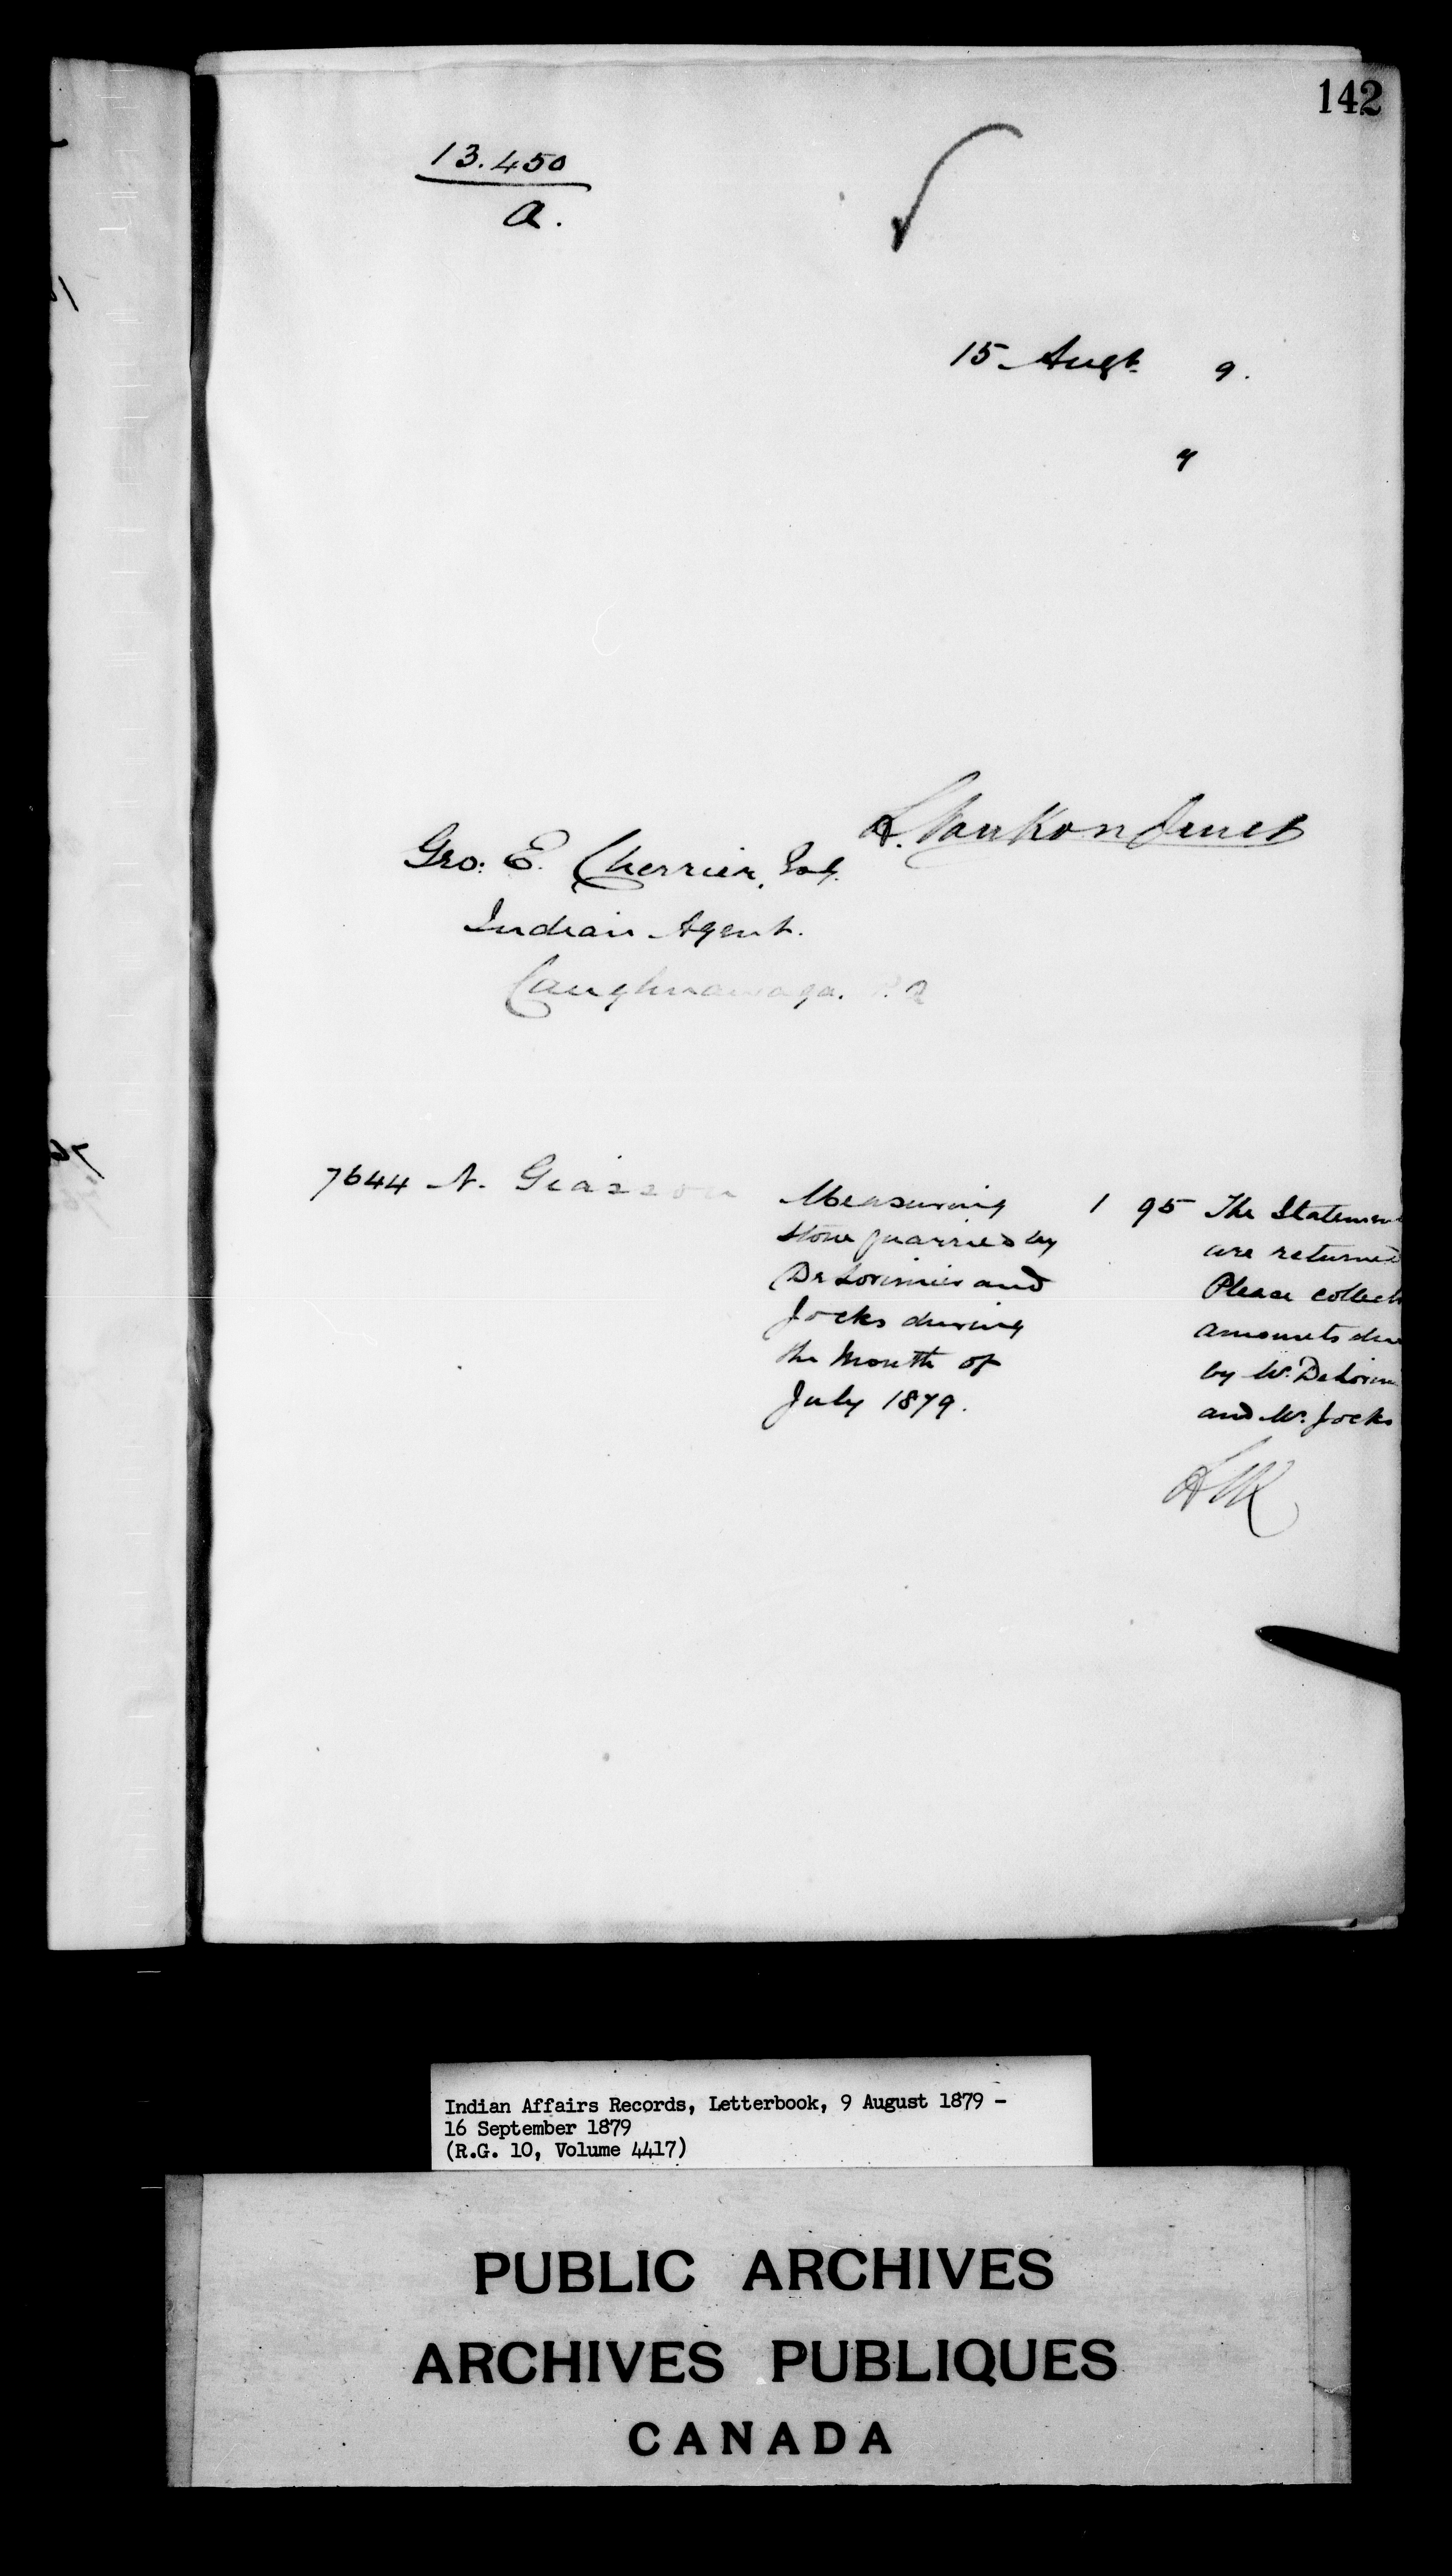 142
13.450
a.
15 Augt. 9.
9
L. VanKoughnet
Geo: E. Cherrier, Esq.
Indian Agent.
Caughnawaga. P.Q
7644 N. Giasson
Measuring
stone quarried by
DeLorimier and
Jocks during
the month of
July 1879.
1 95
The Statemen
are returned
Please collect
amounts due
by Mr. DeLorim
and Mr. Jocks
LVK
Indian Affairs Records, Letterbook, 9 August 1879 -
16 September 1879
(R.G. 10, Volume 4417)
PUBLIC ARCHIVES
ARCHIVES PUBLIQUES
CANADA